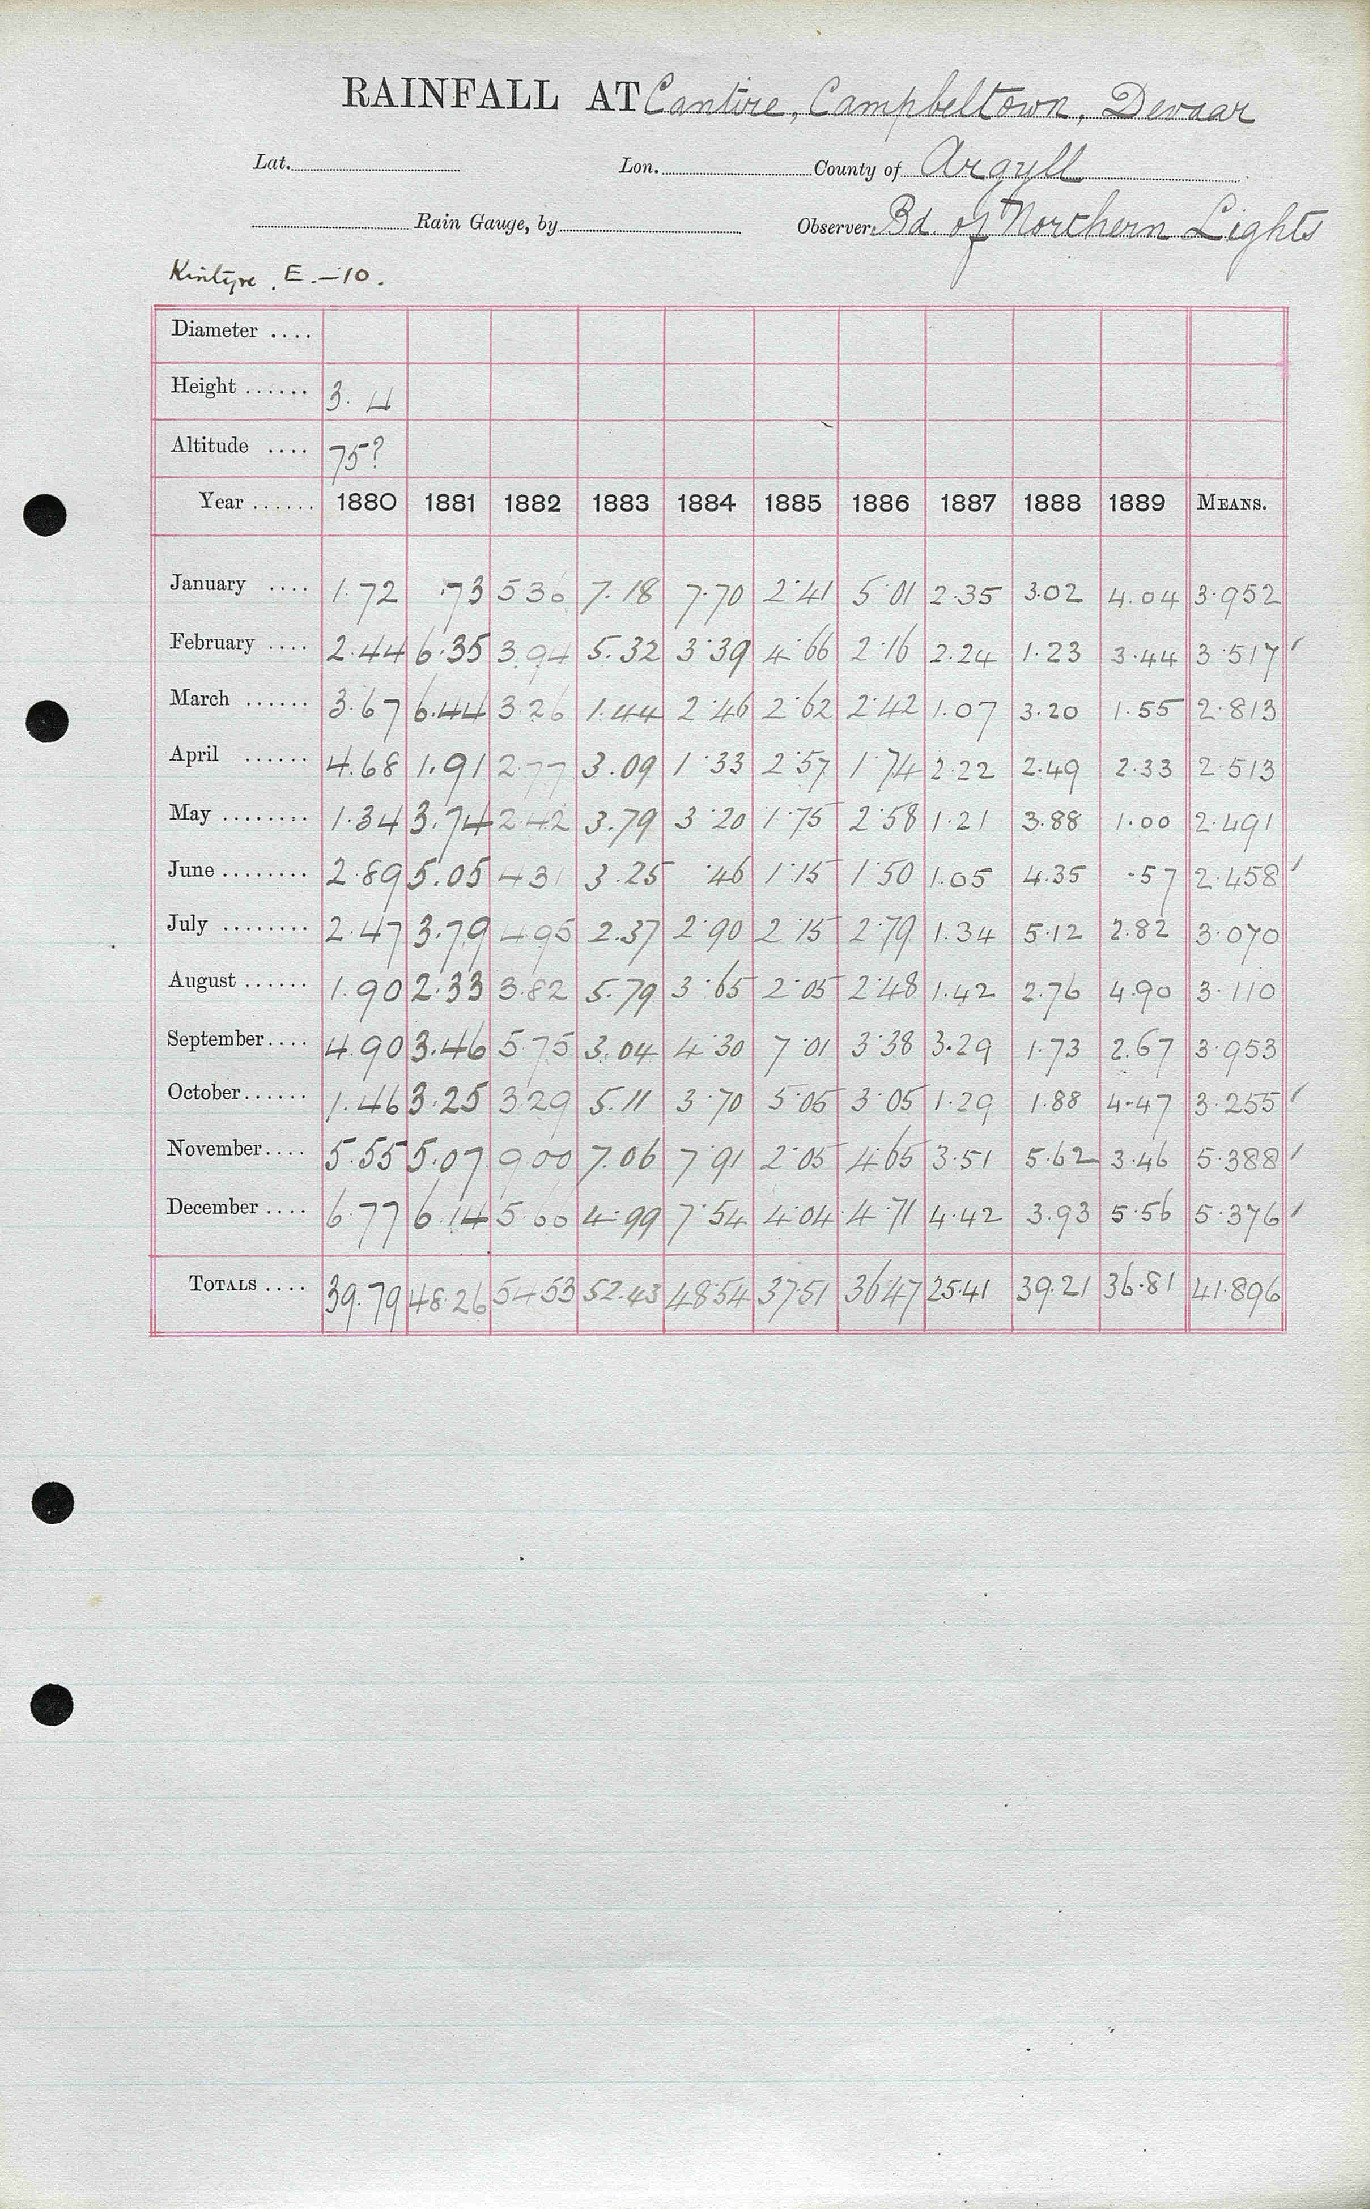 RAINFALL AT Cantire, Campbeltown, Devaar
Lat. Lon. County of Argyll
Rain Gauge, by Observer, Bd. of Northern Lights
Kintyre. E.—10.
Diameter ....
Height ...... 3. 4
Altitude .... 75?
Year ...... 1880 1881 1882 1883 1884 1885 1886 1887 1888 1889 MEANS.
January .... 1.72 .73 5.36 7.18 7.70 2.41 5.01 2.35 3.02 4.04 3.952
February .... 2.44 6.35 3.94 5.32 3.39 4.66 2.16 2.24 1.23 3.44 3.517
March ...... 3.67 6.44 3.26 1.44 2.46 2.62 2.42 1.07 3.20 1.55 2.813
April ...... 4.68 1.91 2.77 3.09 1.33 2.57 1.74 2.22 2.49 2.33 2.513
May ........ 1.34 3.74 2.42 3.79 3.20 1.75 2.58 1.21 3.88 1.00 2.491
June ........ 2.89 5.05 4.31 3.25 .46 1.15 1.50 1.05 4.35 .57 2.458
July ........ 2.47 3.79 4.95 2.37 2.90 2.15 2.79 1.34 5.12 2.82 3.070
August ...... 1.90 2.33 3.82 5.79 3.65 2.05 2.48 1.42 2.76 4.90 3.110
September.... 4.90 3.46 5.75 3.04 4.30 7.01 3.38 3.29 1.73 2.67 3.953
October...... 1.46 3.25 3.29 5.11 3.70 5.05 3.05 1.29 1.88 4.47 3.255
November.... 5.55 5.07 9.00 7.06 7.91 2.05 4.65 3.51 5.62 3.46 5.388
December .... 6.77 6.14 5.66 4.99 7.54 4.04 4.71 4.42 3.93 5.56 5.376
TOTALS .... 39.79 48.26 54.53 52.43 48.54 37.51 36.47 25.41 39.21 36.81 41.896